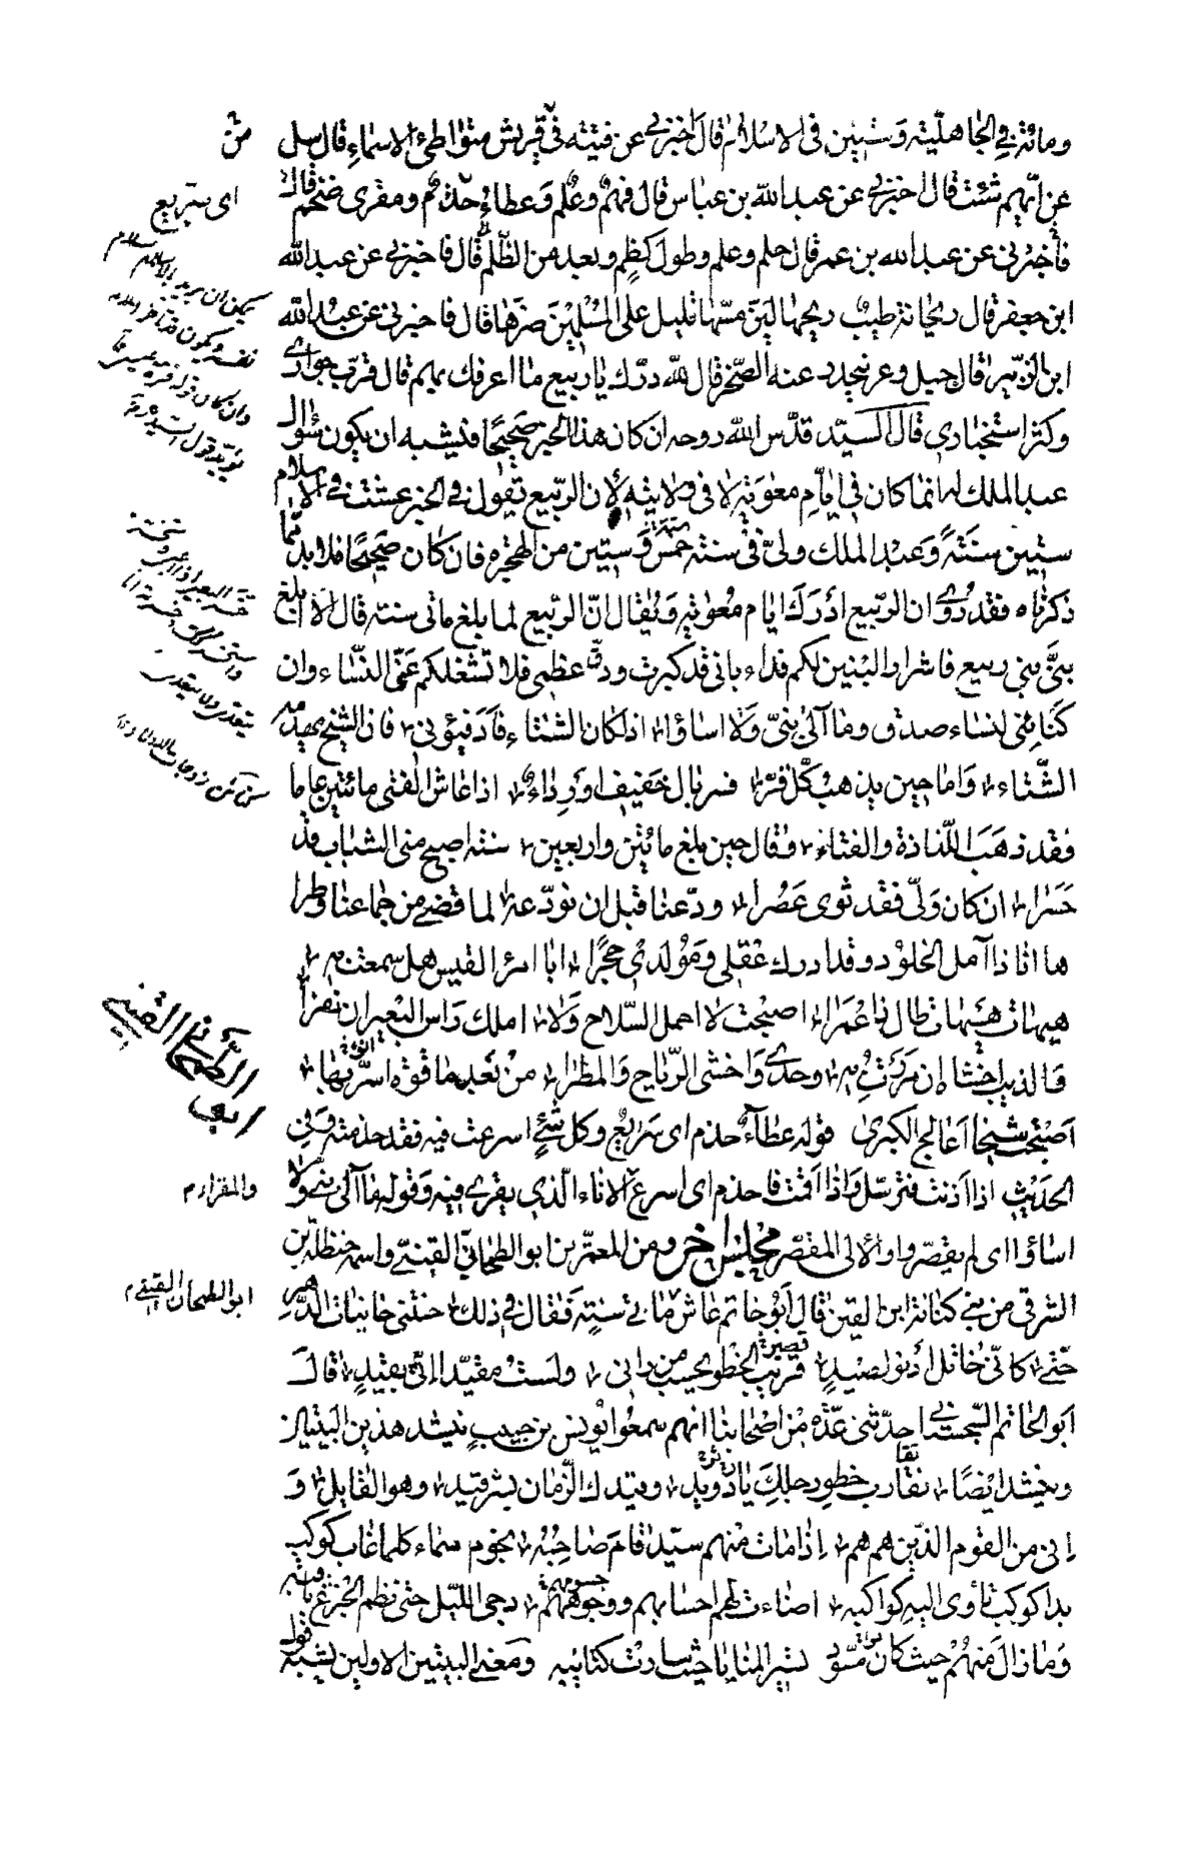 ومائة في الجاهلية وستين في الاسلام قال اخبرني عن فتية في قريش متواطئ الاسماء قال سل
عن ايهم شئت قال اخبرني عن عبد الله بن عباس قال فهم وعلم وعطاء حذم ومقرى ضخم قال
فاخبرني عن عبد الله بن عمر قال حلم وعلم وطول كظم وبعد من الظلم قال فاخبرني عن عبد الله
ابن جعفر قال ريحانة طيب ريحها لين مسها قليل على المسلمين ضرها قال فاخبرني عن عبد الله
ابن الزبير قال جبل وعر ينحدر عنه الصخر قال لله درك يا ربيع ما اعرفك بهم قال قرب جواري
وكثر استخباري قال السيد قدس الله روحه ان كان هذا الخبر صحيحا فيشبه ان يكون سؤال
عبد الملك له انما كان في ايام معوية لا في ولايته لان الربيع يقول في الخبر عشت في الاسلام
ستين سنة وعبد الملك ولي في سنة خمس وستين من الهجرة فان كان صحيحا فلا بد مما
ذكرناه فقد روي ان الربيع ادرك ايام معوية ويقال ان الربيع لما بلغ مائتي سنة قال الا ابلغ
بني بني ربيع فاشرار البنين لكم فداء باني قد كبرت ودق عظمي فلا تشغلكم عني النساء وان
كنائني لنساء صدق وما آلى بني ولا اساؤا اذا كان الشتاء فادفئوني فان الشيخ يهدمه
الشتاء واما حين يذهب كل قر فسربال خفيف او رداء اذا عاش الفتى مائتين عاما
فقد ذهب اللذاذة والفتاء وقال حين بلغ مائتين واربعين سنة اصبح مني الشباب قد
حسرا ان كان ولى فقد ثوى عصرا ودعنا قبل ان نودعه لما قضى من جماعنا وطرا
ها انا ذا آمل الخلود وقد ادرك عقلي ومولدي حجرا ابا امرئ القيس هل سمعت به
هيهات هيهات طال ذا عمرا اصبحت لا احمل السلاح ولا املك راس البعير ان نفرا
والذيب اخشاه ان مررت به وحدي واخشى الرياح والمطرا من بعد ما قوة اسر بها
اصبحت شيخا اعالج الكبرى قوله عطاء حذم اي سريع وكل شئ اسرعت فيه فقد حذمته وفي
الحديث اذا اذنت فترسل واذا اقمت فاحذم اي اسرع الاناء الذي يقرى فيه وقوله ما آلى بني ولا
اساؤا اي لم يقصروا والالى المقصر مجلس آخر ومن المعمرين ابو الطمحان القيني واسمه حنظلة بن
الشرقي من بني كنانة ابن القين قال ابو حاتم عاش مائتي سنة فقال في ذلك حنتني حانيات الدهر
حتى كاني خاتل ادنو لصيد قريب الخطو يحسب من رآني ولست مقيدا اني بقيد قال
ابو الحاتم السجستاني حدثني عدة من اصحابنا انهم سمعوا يونس بن حبيب ينشد هذين البيتين
وينشد ايضا تقارب خطو رجلك يا دويد وقيدك الزمان بشر قيد وهو القايل و
اني من القوم الذين هم هم اذا مات منهم سيد قام صاحبه نجوم سماء كلما غاب كوكب
بدا كوكب تأوى اليه كواكبه اضاءت لهم احسابهم ووجوههم دجى الليل حتى نظم الجزع ثاقبه
وما زال منهم حيث كان مسود تسير المنايا حيث سارت كتائبه ومعنى البيتين الاولين يشبه قول
اي سريع
ابو الطمحان القيني
ابو الطمحان القيني م